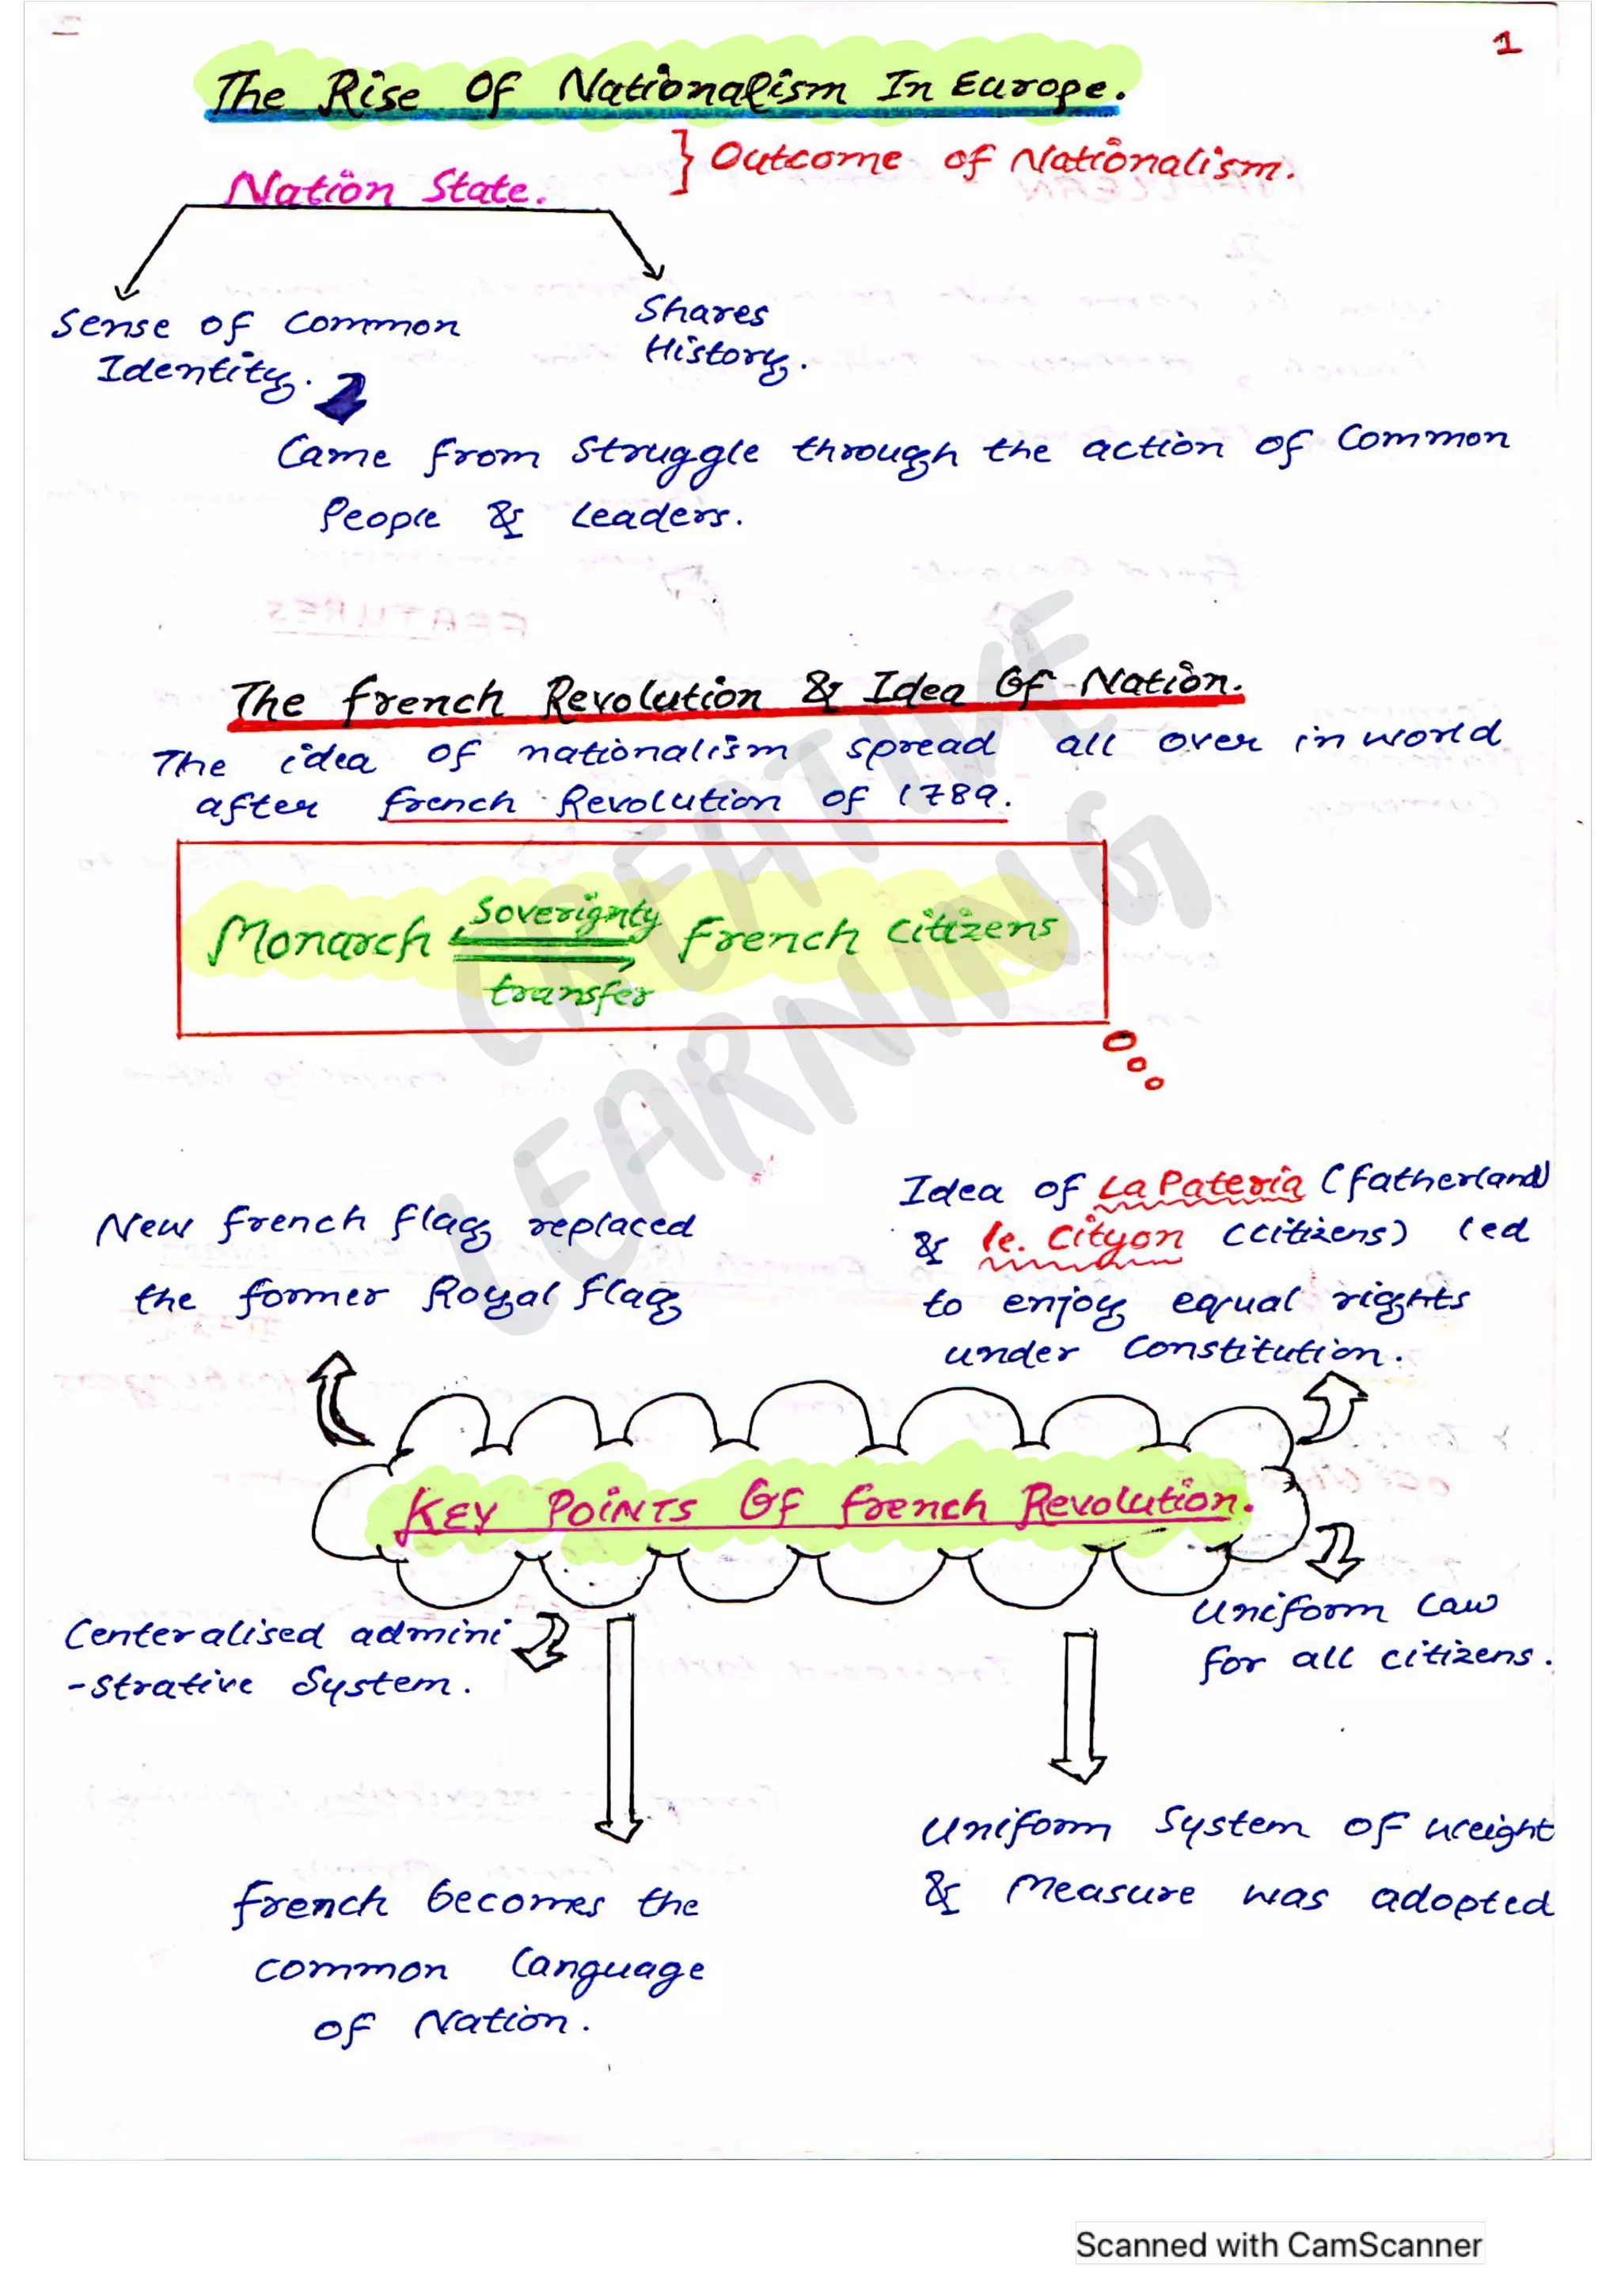 1
The Rise Of Nationalism In Europe.
} Outcome of Nationalism.
Nation State.
Sense of Common
Identity.
Shares
History.
Came from Struggle through the action of Common
People & Leaders.
The french Revolution & Idea Of Nation.
The idea of nationalism spread all over in world
after french Revolution of 1789.
Monarch Soverignty transfer French Citizens
CREATIVE
LEARNING
New french flag replaced
the former Royal flag
Idea of La Pateria (fatherland)
& le. Cityon (citizens) led
to enjoy equal rights
under Constitution.
KEY POINTS OF french Revolution.
Centeralised admini
-strative System.
Uniform Law
for all citizens.
french becomes the
common Language
of Nation.
Uniform System of weight
& Measure was adopted
Scanned with CamScanner